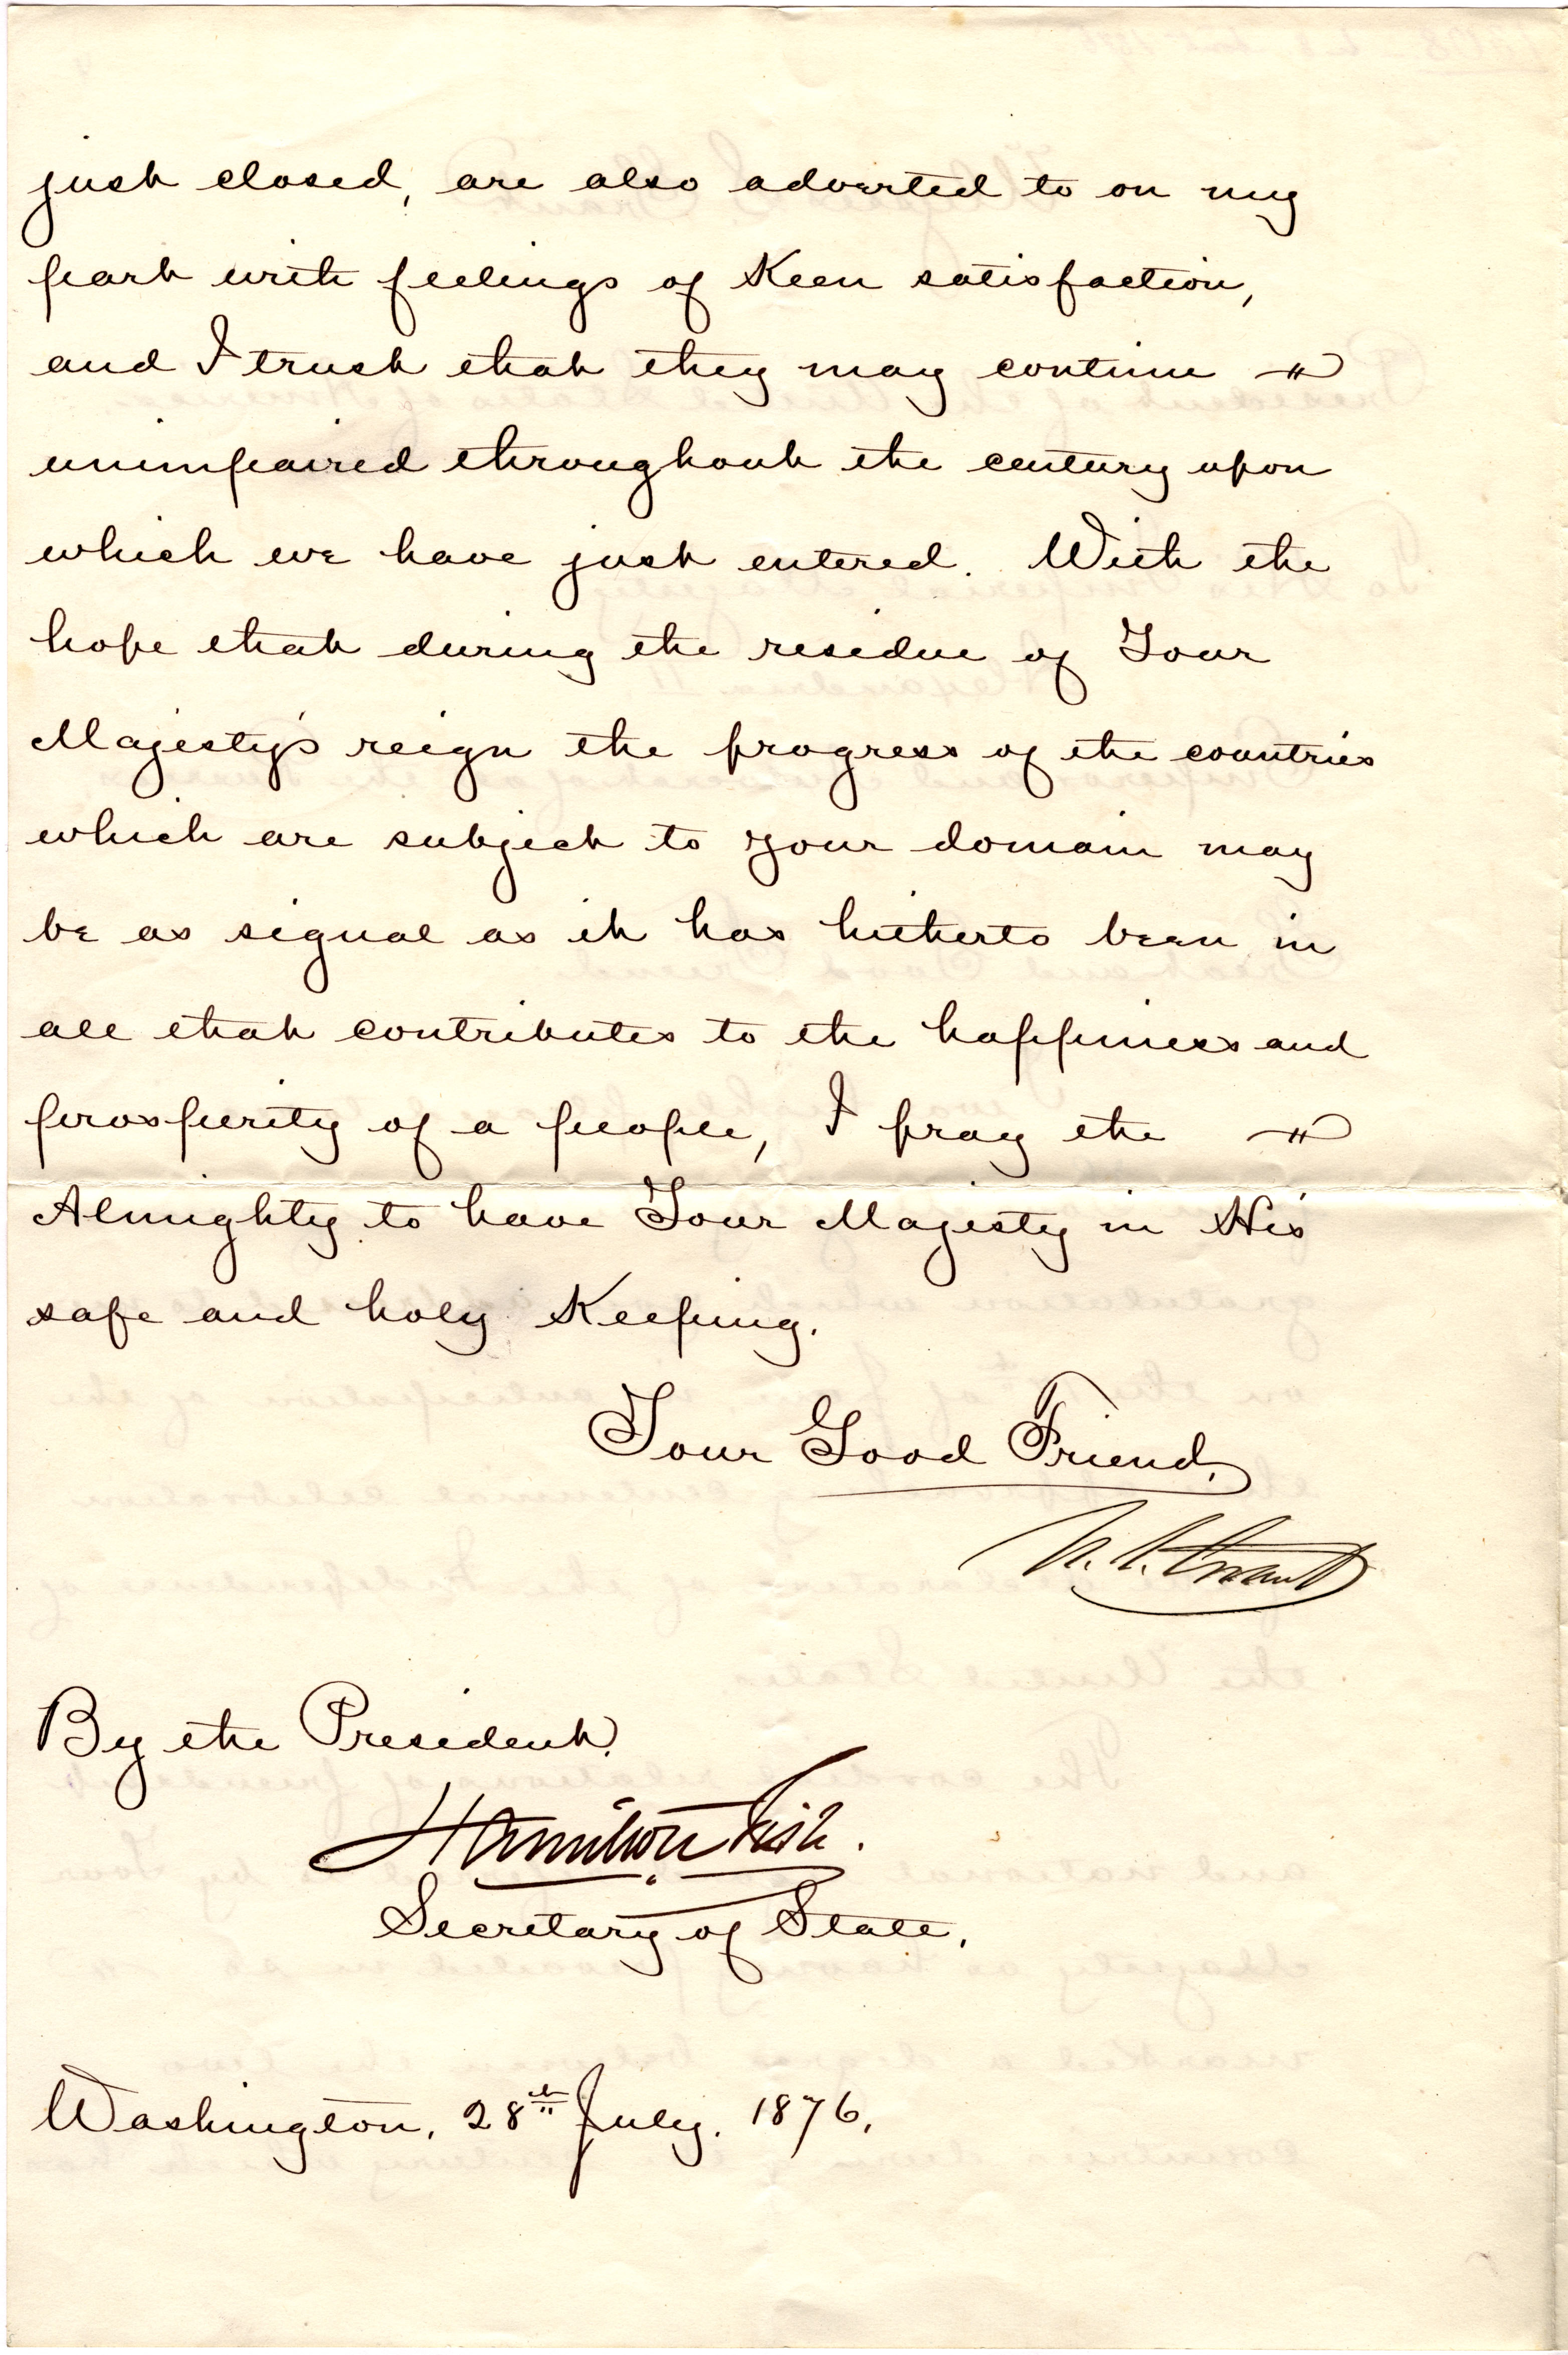 just closed, are also adverted to on my
part with feelings of Keen satisfaction,
and I trust that they may continue
unimpaired throughout the century upon
which we have just entered. With the
hope that during the residue of Your
Majesty's reign the progress of the countries
which are subject to your domain may
be as signal as it has hitherto been in
all that contributes to the happiness and
prosperity of a people, I pray the
Almighty to have Your Majesty in His
safe and holy Keeping.
Your Good Friend,
U. S. Grant
By the President.
Hamilton Fish.
Secretary of State.
Washington, 28th July. 1876.